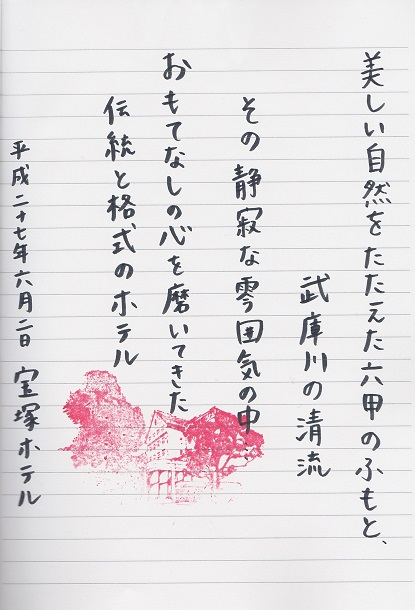 美しい自然をたたえた六甲のふもと、
武庫川の清流
その静寂な雰囲気の中…
おもてなしの心を磨いてきた
伝統と格式のホテル
平成二十七年六月二日 宝塚ホテル